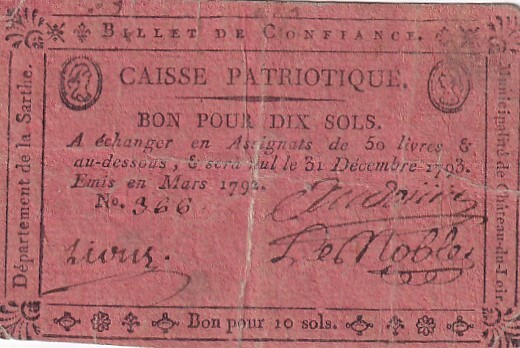 BILLET DE CONFIANCE.
Département de la Sarthe.
CAISSE PATRIOTIQUE.
BON POUR DIX SOLS.
A échanger en Assignats de 50 livres &
au-dessous, & sera nul le 31 Décembre 1793.
Emis en Mars 1792.
No. 366
Le Noble
Municipalité de Château-du-Loir.
Bon pour 10 sols.